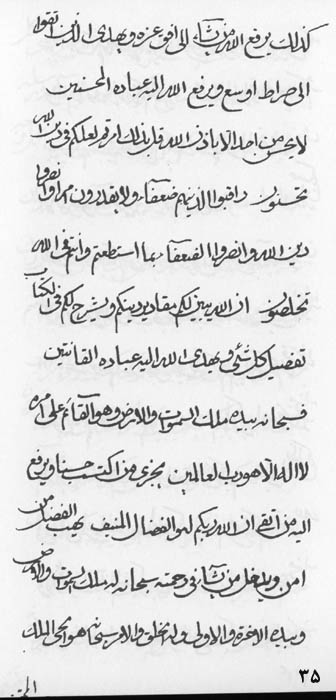 كذلك يرفع الله من يشاء الى افق عزه ويهدى الذين اتقوا
الى صراط اوسع ويرفع الله اليه عباده المحسنين
لا يحسن من احد الا باذن الله قل بذلك امرتم لعلكم فى دين الله
تحسنون راقبوا الذينهم ضعفاء ولا يقدرون ان
دين الله وانصروا الضعفاء بما استطعتم وانتم فى الله
تخلصون ان الله يبين لكم مقادير دينكم ويشرح لكم فى الكتاب
تفصيل كل شئ ويهدى الله اليه عباده القانتين
فسبحانه بيده ملك السموات والارض وهو القائم على امره
لا اله الا هو رب العالمين يجزى من اكتسب حسنا ويرفع
اليه من اتقى ان الله ربكم لهو الفضال المنيف يهب الفضل من
امن ويدخل من يشاء فى رحمته سبحانه له ملك السموات والارض
وبيده الاخرة والاولى وله الخلق والامر سبحانه هو الحى الملك
٣٥